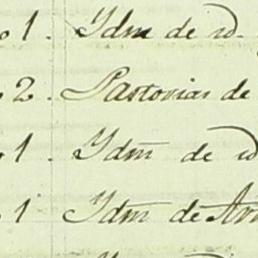 1. Ydm de id.
2. Pastorias de
1. Ydm de id
1 Ydm de